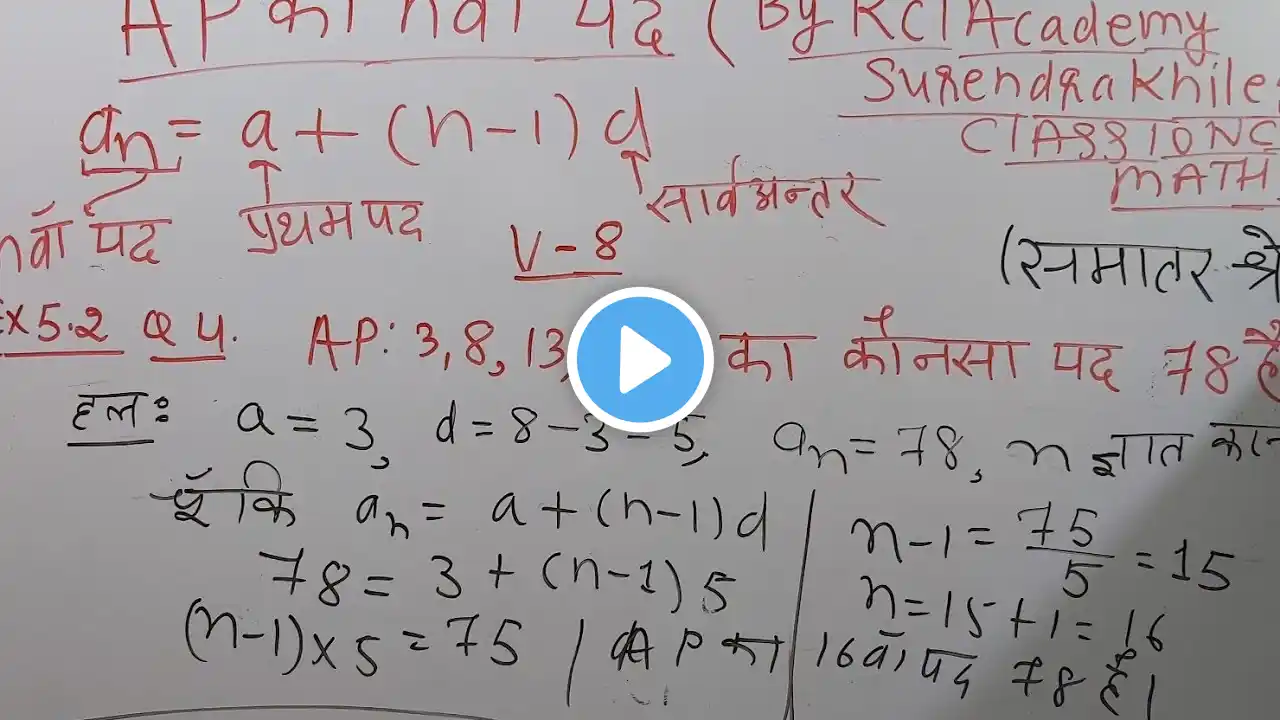 AP का nवाँ पद (By KCI Academy
Surendra Khile
CLASS 10 NC
MATH
an = a + (n-1) d
nवाँ पद प्रथम पद सार्वअन्तर
V-8
(समांतर श्रे
Ex 5.2 Q 4. AP: 3, 8, 13, का कौनसा पद 78 है
हल: a = 3, d = 8-3=5, an = 78, n ज्ञात
चूँकि an = a + (n-1)d
78 = 3 + (n-1) 5
(n-1)×5 = 75
n-1 = 75/5 = 15
n = 15 + 1 = 16
AP का 16वाँ पद 78 है।